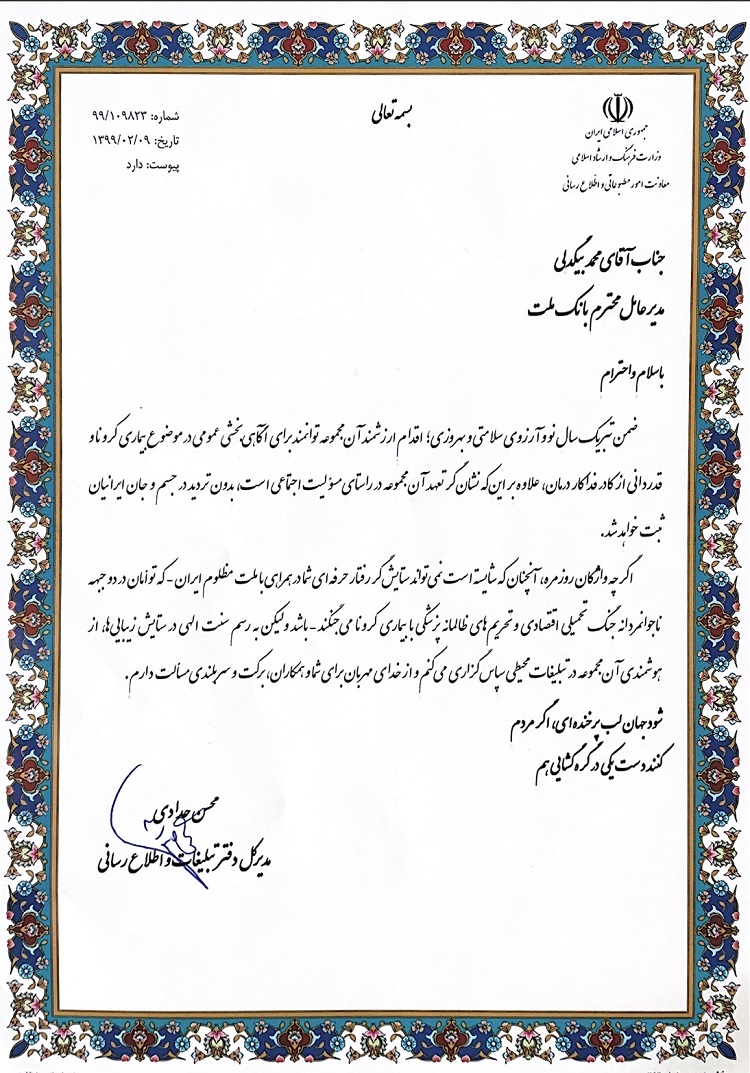 بسمه تعالی
جمهوری اسلامی ایران
وزارت فرهنگ و ارشاد اسلامی
معاونت امور مطبوعاتی و اطلاع رسانی
شماره: ۹۹/۱۰۹۸۲۳
تاریخ: ۱۳۹۹/۰۲/۰۹
پیوست: دارد
جناب آقای محمد بیگدلی
مدیر عامل محترم بانک ملت
با سلام و احترام
ضمن تبریک سال نو و آرزوی سلامتی و بهروزی؛ اقدام ارزشمند آن مجموعه توانمند برای آگاهی بخشی عمومی در موضوع بیماری کرونا و
قدردانی از کادر فداکار درمان، علاوه بر این که نشان گر تعهد آن مجموعه در راستای مسؤلیت اجتماعی است، بدون تردید در جسم و جان ایرانیان
ثبت خواهد شد.
اگر چه واژگان روزمره، آنچنان که شایسته است نمی تواند ستایش گر رفتار حرفه ای شما در همراهی با ملت مظلوم ایران - که توأمان در دو جبهه
ناجوانمردانه جنگ تحمیلی اقتصادی و تحریم های ظالمانه پزشکی با بیماری کرونا می جنگند - باشد ولیکن به رسم سنت الهی در ستایش زیبایی ها، از
هوشمندی آن مجموعه در تبلیغات محیطی سپاس گزاری می کنم و از خدای مهربان برای شما و همکاران، برکت و سربلندی مسألت دارم.
شود جهان لب پر خنده ای، اگر مردم
کنند دست یکی در گره گشایی هم
محسن حدادی
مدیرکل دفتر تبلیغات و اطلاع رسانی